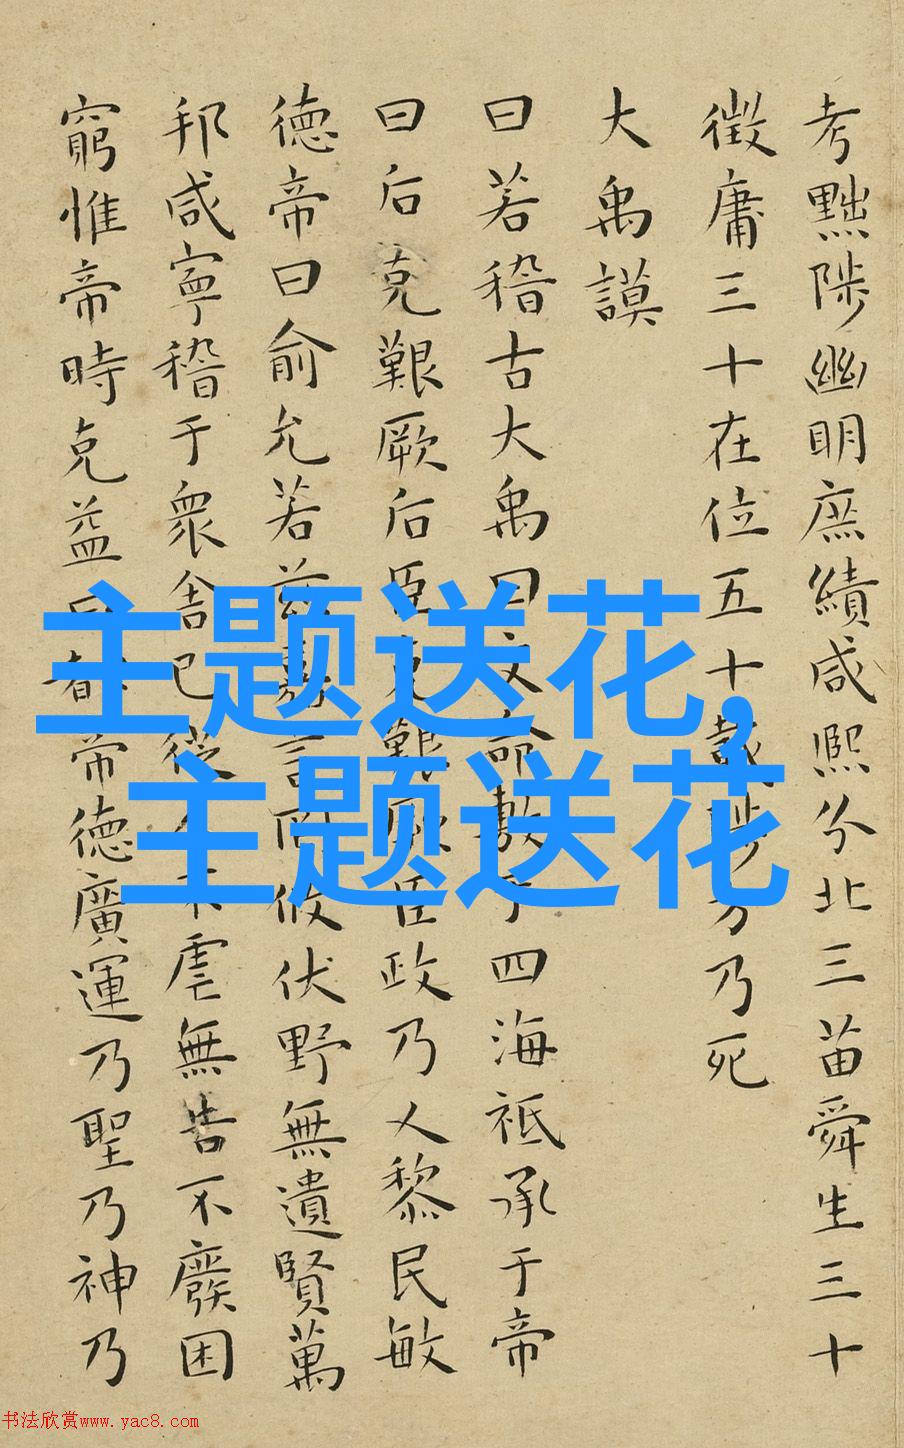 考黜陟幽明庶績咸熙分北三苗舜生三十
徵庸三十在位五十載陟方乃死
大禹謨
曰若稽古大禹曰文命敷于四海祗承于帝
曰后克艱厥后臣克艱厥臣政乃乂黎民敏
德帝曰俞允若茲嘉言罔攸伏野無遺賢萬
邦咸寧稽于衆舍己從人不虐無告不廢困
窮惟帝時克益曰都帝德廣運乃聖乃神乃
主题送花,
主题送花
书法欣赏www.yac8.com